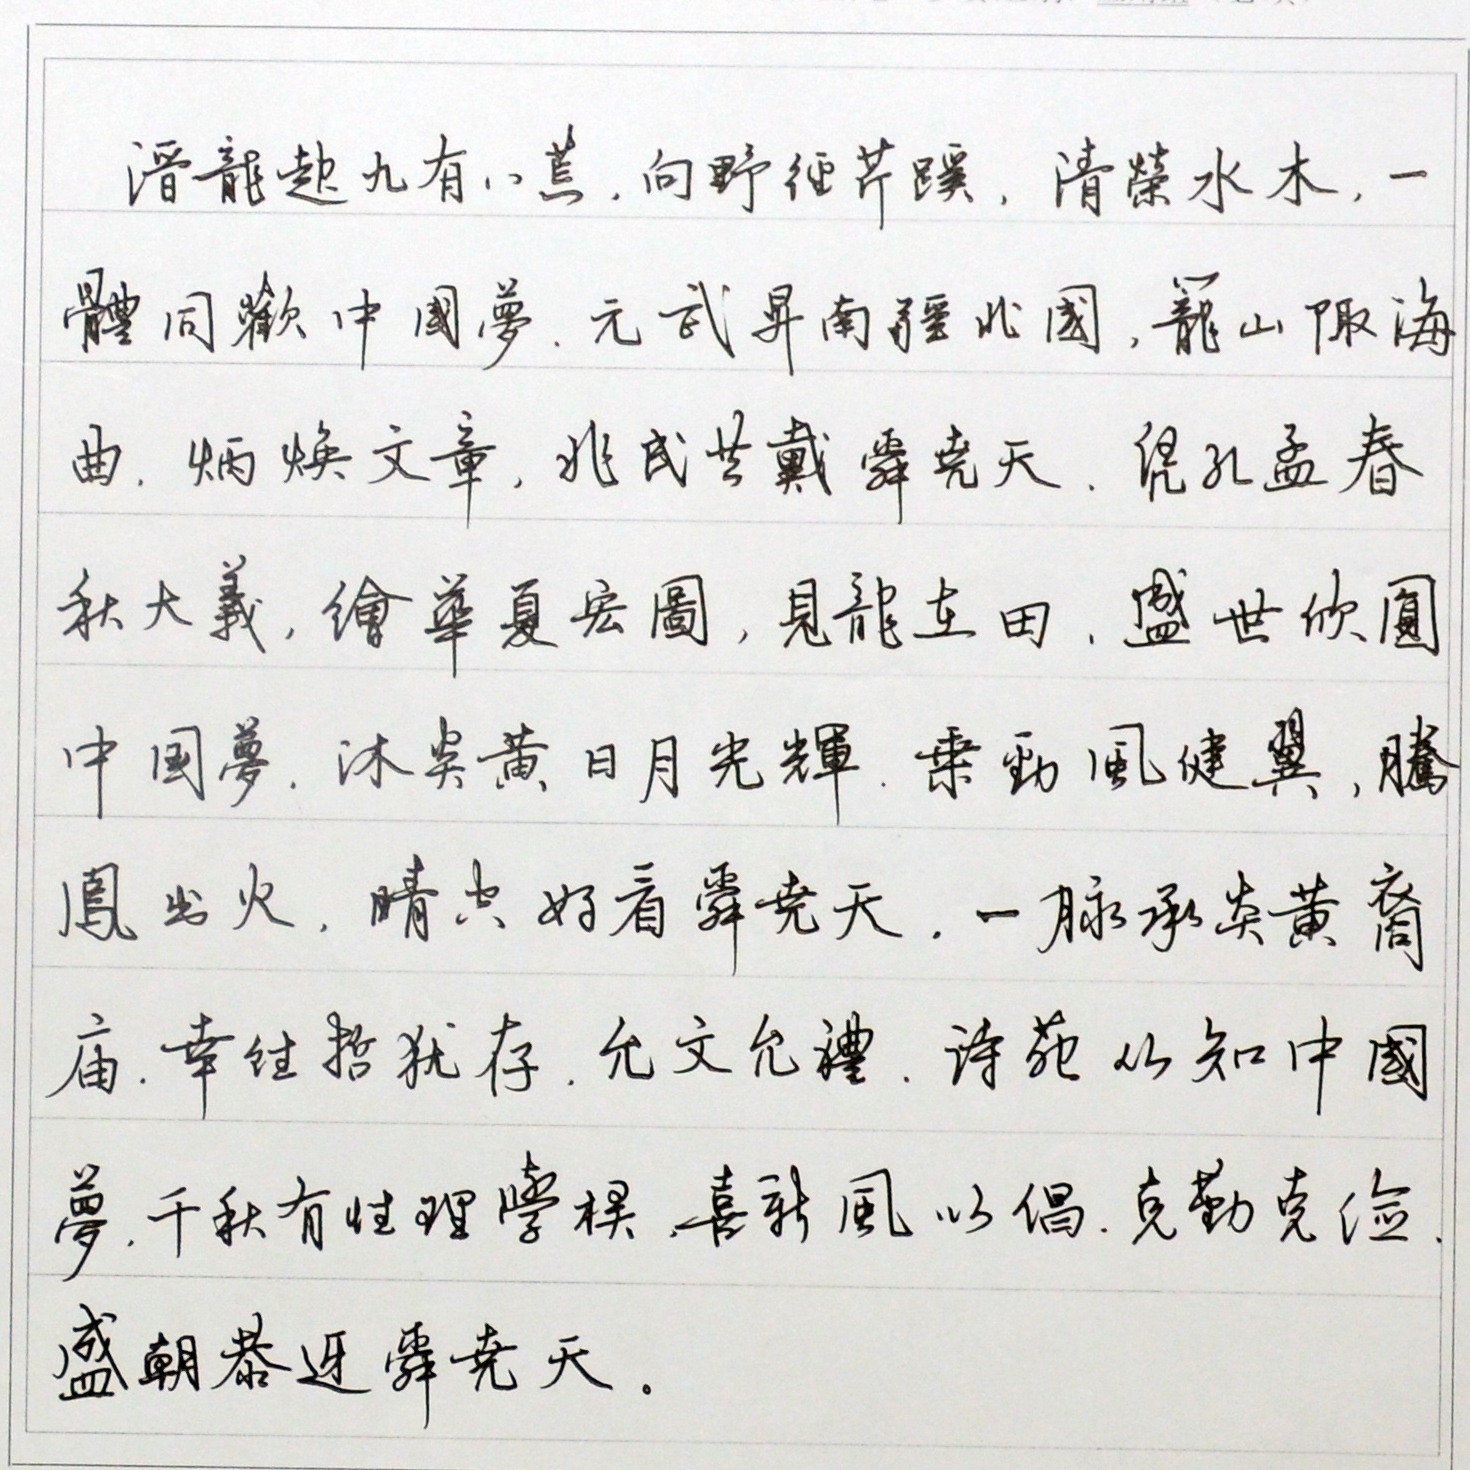 潛龍起九有八荒，向野徑芹蹊，清榮水木，一
體同歡中國夢，元武昇南疆北國，籠山陬海
曲，炳煥文章，兆民共戴舜堯天，凭孔孟春
秋大義，繪華夏宏圖，見龍在田，盛世欣圓
中國夢，沐炎黃日月光輝，乘勁風健翼，騰
鳳出火，晴空好看舜堯天，一脉承炎黃裔
庙，幸往哲犹存，允文允禮，诗苑以知中國
夢，千秋有性理學楔，喜新風以倡，克勤克儉，
盛朝恭迓舜堯天。